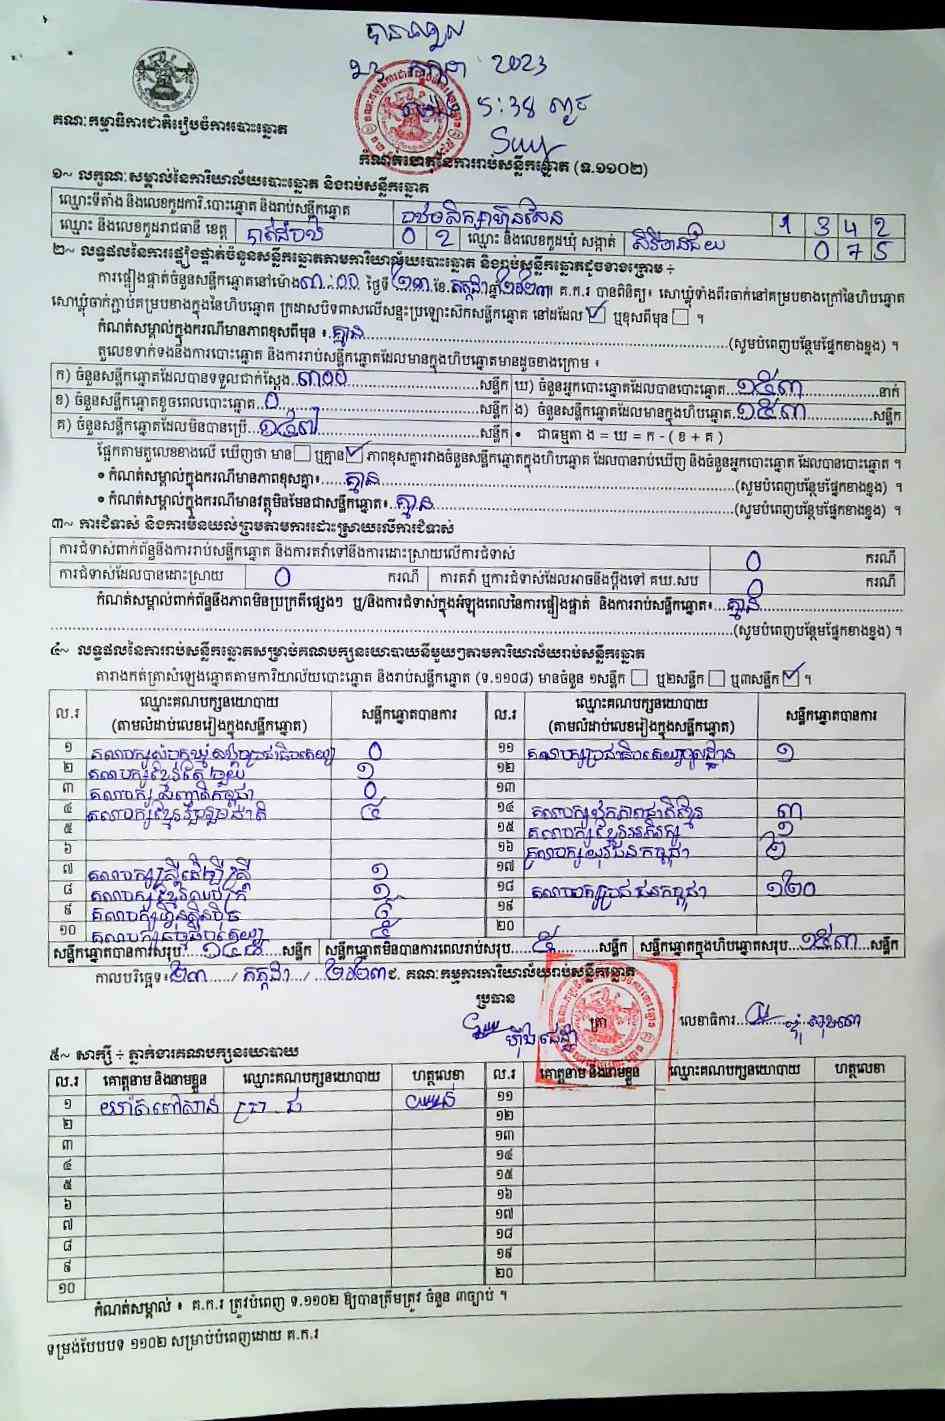 បានឃើញ
២៣ កក្កដា 2023
5:38 ល្ងាច
គណៈកម្មាធិការជាតិរៀបចំការបោះឆ្នោត
កំណត់ហេតុនៃការរាប់សន្លឹកឆ្នោត (ទ.១១០២)
១~ លក្ខណៈសម្គាល់នៃការិយាល័យបោះឆ្នោត និងរាប់សន្លឹកឆ្នោត
ឈ្មោះទីតាំង និងលេខកូដការិ.បោះឆ្នោត និងរាប់សន្លឹកឆ្នោត 1 3 4 2
ឈ្មោះ និងលេខកូដរាជធានី ខេត្ត បាត់ដំបង 0 2 ឈ្មោះ និងលេខកូដឃុំ សង្កាត់ 0 7 5
២~ លទ្ធផលនៃការផ្ទៀងផ្ទាត់ចំនួនសន្លឹកឆ្នោតតាមការិយាល័យបោះឆ្នោត និងរាប់សន្លឹកឆ្នោតដូចខាងក្រោម ÷
ការផ្ទៀងផ្ទាត់ចំនួនសន្លឹកឆ្នោតនៅម៉ោង ៣:00 ថ្ងៃទី ២៣ ខែ កក្កដា ឆ្នាំ ២០២៣ គ.ក.រ បានពិនិត្យ៖ សោខ្ទុំទាំងពីរចាក់នៅគម្របខាងក្រៅនៃហិបឆ្នោត
សោខ្ទុំចាក់ភ្ជាប់គម្របខាងក្នុងនៃហិបឆ្នោត ក្រដាសបិទពាសលើសន្ទះប្រឡោះសៀតសន្លឹកឆ្នោត នៅដដែល ☑ ឬខុសពីមុន ☐ ។
កំណត់សម្គាល់ក្នុងករណីមានភាពខុសពីមុន ៖ គ្មាន (សូមបំពេញបន្ថែមផ្នែកខាងខ្នង) ។
តួលេខទាក់ទងនឹងការបោះឆ្នោត និងការរាប់សន្លឹកឆ្នោតដែលមានក្នុងហិបឆ្នោតមានដូចខាងក្រោម ៖
ក) ចំនួនសន្លឹកឆ្នោតដែលបានទទួលជាក់ស្តែង ៣០០ សន្លឹក ឃ) ចំនួនអ្នកបោះឆ្នោតដែលបានបោះឆ្នោត ១៥៣ នាក់
ខ) ចំនួនសន្លឹកឆ្នោតខូចពេលបោះឆ្នោត 0 សន្លឹក ង) ចំនួនសន្លឹកឆ្នោតដែលមានក្នុងហិបឆ្នោត ១៥៣ សន្លឹក
គ) ចំនួនសន្លឹកឆ្នោតដែលមិនបានប្រើ ១៤៧ សន្លឹក • ជាធម្មតា ង = ឃ = ក - ( ខ + គ )
ផ្អែកតាមតួលេខខាងលើ ឃើញថា មាន ☐ ឬគ្មាន ☑ ភាពខុសគ្នារវាងចំនួនសន្លឹកឆ្នោតក្នុងហិបឆ្នោត ដែលបានរាប់ឃើញ និងចំនួនអ្នកបោះឆ្នោត ដែលបានបោះឆ្នោត ។
• កំណត់សម្គាល់ក្នុងករណីមានភាពខុសគ្នា៖ គ្មាន (សូមបំពេញបន្ថែមផ្នែកខាងខ្នង) ។
• កំណត់សម្គាល់ក្នុងករណីមានវត្ថុមិនមែនជាសន្លឹកឆ្នោត៖ គ្មាន (សូមបំពេញបន្ថែមផ្នែកខាងខ្នង) ។
៣~ ការជំទាស់ និងការមិនយល់ព្រមតាមការដោះស្រាយលើការជំទាស់
ការជំទាស់ពាក់ព័ន្ធនឹងការរាប់សន្លឹកឆ្នោត និងការតវ៉ាទៅនឹងការដោះស្រាយលើការជំទាស់ 0 ករណី
ការជំទាស់ដែលបានដោះស្រាយ 0 ករណី ការតវ៉ា ឬការជំទាស់ដែលអាចនឹងប្តឹងទៅ គឃ.សប 0 ករណី
កំណត់សម្គាល់ពាក់ព័ន្ធនឹងភាពមិនប្រក្រតីផ្សេងៗ ឬ/និងការជំទាស់ក្នុងអំឡុងពេលនៃការផ្ទៀងផ្ទាត់ និងការរាប់សន្លឹកឆ្នោត៖ គ្មាន
(សូមបំពេញបន្ថែមផ្នែកខាងខ្នង) ។
៤~ លទ្ធផលនៃការរាប់សន្លឹកឆ្នោតសម្រាប់គណបក្សនយោបាយនីមួយៗតាមការិយាល័យរាប់សន្លឹកឆ្នោត
តារាងកត់ត្រាសំឡេងឆ្នោតតាមការិយាល័យបោះឆ្នោត និងរាប់សន្លឹកឆ្នោត (ទ.១១០៨) មានចំនួន ១សន្លឹក ☐ ឬ២សន្លឹក ☐ ឬ៣សន្លឹក ☑ ។
ល.រ ឈ្មោះគណបក្សនយោបាយ (តាមលំដាប់លេខរៀងក្នុងសន្លឹកឆ្នោត) សន្លឹកឆ្នោតបានការ ល.រ ឈ្មោះគណបក្សនយោបាយ (តាមលំដាប់លេខរៀងក្នុងសន្លឹកឆ្នោត) សន្លឹកឆ្នោតបានការ
១ គណបក្សសំបុកឃ្មុំសង្គមប្រជាធិបតេយ្យ 0 ១១ គណបក្សប្រជាធិបតេយ្យមូលដ្ឋាន ១
២ គណបក្សខ្មែរតែមួយ ១ ១២
៣ គណបក្សសញ្ជាតិកម្ពុជា 0 ១៣
៤ គណបក្សខ្មែររួបរួមជាតិ ៤ ១៤ គណបក្សឯកភាពជាតិខ្មែរ ៣
៥ ១៥ គណបក្សខ្មែរអភិរក្ស ១
៦ ១៦ គណបក្សយុវជនកម្ពុជា ២
៧ គណបក្សស្ត្រីដើម្បីស្ត្រី ១ ១៧
៨ គណបក្សខ្មែរឈប់ក្រ ១ ១៨ គណបក្សប្រជាជនកម្ពុជា ១២០
៩ គណបក្សហ្វ៊ុនស៊ិនប៉ិច ១៩
១០ ២០
សន្លឹកឆ្នោតបានការសរុប ១៤៨ សន្លឹក សន្លឹកឆ្នោតមិនបានការពេលរាប់សរុប ៥ សន្លឹក សន្លឹកឆ្នោតក្នុងហិបឆ្នោតសរុប ១៥៣ សន្លឹក
កាលបរិច្ឆេទ៖ ២៣ / កក្កដា / ២០២៣ ជ. គណៈកម្មការការិយាល័យរាប់សន្លឹកឆ្នោត
ប្រធាន
ត្រា លេខាធិការ
៥~ សាក្សី ÷ ភ្នាក់ងារគណបក្សនយោបាយ
ល.រ គោត្តនាម និងនាមខ្លួន ឈ្មោះគណបក្សនយោបាយ ហត្ថលេខា ល.រ គោត្តនាម និងនាមខ្លួន ឈ្មោះគណបក្សនយោបាយ ហត្ថលេខា
១ ប្រ.ជ ១១
២ ១២
៣ ១៣
៤ ១៤
៥ ១៥
៦ ១៦
៧ ១៧
៨ ១៨
៩ ១៩
១០ ២០
កំណត់សម្គាល់ ៖ គ.ក.រ ត្រូវបំពេញ ទ.១១០២ ឱ្យបានត្រឹមត្រូវ ចំនួន ៣ច្បាប់ ។
ទម្រង់បែបបទ ១១០២ សម្រាប់បំពេញដោយ គ.ក.រ